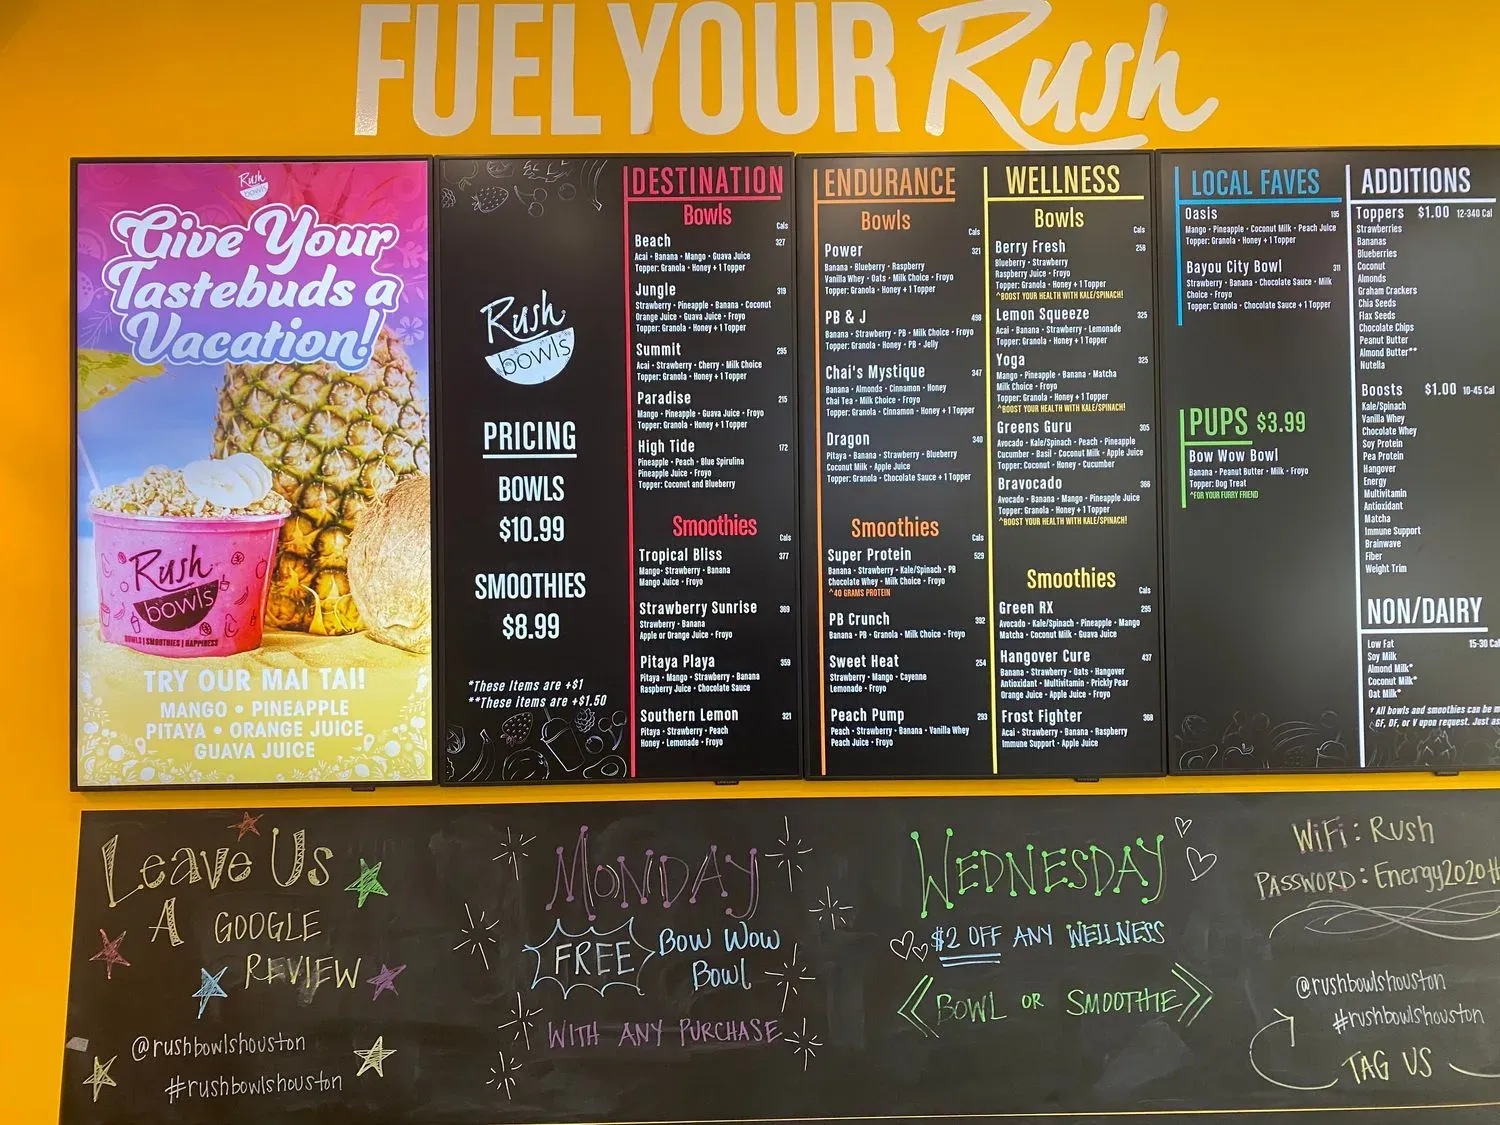 FUEL YOUR Rush
Rush
bowls
Give Your
Tastebuds a
Vacation!
Rush
bowls
BOWLS | SMOOTHIES | HAPPINESS
TRY OUR MAI TAI!
MANGO • PINEAPPLE
PITAYA • ORANGE JUICE
GUAVA JUICE
Rush
bowls
PRICING
BOWLS
$10.99
SMOOTHIES
$8.99
*These Items are +$1
**These items are +$1.50
DESTINATION
Bowls
Cals
Beach 327
Acai • Banana • Mango • Guava Juice
Topper: Granola • Honey + 1 Topper
Jungle 319
Strawberry • Pineapple • Banana • Coconut
Orange Juice • Guava Juice • Froyo
Topper: Granola • Honey + 1 Topper
Summit 295
Acai • Strawberry • Cherry • Milk Choice
Topper: Granola • Honey + 1 Topper
Paradise 215
Mango • Pineapple • Guava Juice • Froyo
Topper: Granola • Honey + 1 Topper
High Tide 172
Pineapple • Peach • Blue Spirulina
Pineapple Juice • Froyo
Topper: Coconut and Blueberry
Smoothies
Cals
Tropical Bliss 377
Mango • Strawberry • Banana
Mango Juice • Froyo
Strawberry Sunrise 369
Strawberry • Banana
Apple or Orange Juice • Froyo
Pitaya Playa 359
Pitaya • Mango • Strawberry • Banana
Raspberry Juice • Chocolate Sauce
Southern Lemon 321
Pitaya • Strawberry • Peach
Honey • Lemonade • Froyo
ENDURANCE
Bowls
Cals
Power 321
Banana • Blueberry • Raspberry
Vanilla Whey • Oats • Milk Choice • Froyo
Topper: Granola • Honey + 1 Topper
PB & J 498
Banana • Strawberry • PB • Milk Choice • Froyo
Topper: Granola • Honey • PB • Jelly
Chai's Mystique 347
Banana • Almonds • Cinnamon • Honey
Chai Tea • Milk Choice • Froyo
Topper: Granola • Cinnamon • Honey + 1 Topper
Dragon 340
Pitaya • Banana • Strawberry • Blueberry
Coconut Milk • Apple Juice
Topper: Granola • Chocolate Sauce + 1 Topper
Smoothies
Cals
Super Protein 529
Banana • Strawberry • Kale/Spinach • PB
Chocolate Whey • Milk Choice • Froyo
^40 GRAMS PROTEIN
PB Crunch 392
Banana • PB • Granola • Milk Choice • Froyo
Sweet Heat 254
Strawberry • Mango • Cayenne
Lemonade • Froyo
Peach Pump 293
Peach • Strawberry • Banana • Vanilla Whey
Peach Juice • Froyo
WELLNESS
Bowls
Cals
Berry Fresh 256
Blueberry • Strawberry
Raspberry Juice • Froyo
Topper: Granola • Honey + 1 Topper
^BOOST YOUR HEALTH WITH KALE/SPINACH!
Lemon Squeeze 325
Acai • Banana • Strawberry • Lemonade
Topper: Granola • Honey + 1 Topper
Yoga 325
Mango • Pineapple • Banana • Matcha
Milk Choice • Froyo
Topper: Granola • Honey + 1 Topper
^BOOST YOUR HEALTH WITH KALE/SPINACH!
Greens Guru 305
Avocado • Kale/Spinach • Peach • Pineapple
Cucumber • Basil • Coconut Milk • Apple Juice
Topper: Coconut • Honey • Cucumber
Bravocado 366
Avocado • Banana • Mango • Pineapple Juice
Topper: Granola • Honey + 1 Topper
^BOOST YOUR HEALTH WITH KALE/SPINACH!
Smoothies
Cals
Green RX 295
Avocado • Kale/Spinach • Pineapple • Mango
Matcha • Coconut Milk • Guava Juice
Hangover Cure 437
Banana • Strawberry • Oats • Hangover
Antioxidant • Multivitamin • Prickly Pear
Orange Juice • Apple Juice • Froyo
Frost Fighter 368
Acai • Strawberry • Banana • Raspberry
Immune Support • Apple Juice
LOCAL FAVES
Oasis 195
Mango • Pineapple • Coconut Milk • Peach Juice
Topper: Granola • Honey + 1 Topper
Bayou City Bowl 311
Strawberry • Banana • Chocolate Sauce • Milk
Choice • Froyo
Topper: Granola • Chocolate Sauce + 1 Topper
PUPS $3.99
Bow Wow Bowl
Banana • Peanut Butter • Milk • Froyo
Topper: Dog Treat
^FOR YOUR FURRY FRIEND
ADDITIONS
Toppers $1.00 12-340 Cal
Strawberries
Bananas
Blueberries
Coconut
Almonds
Graham Crackers
Chia Seeds
Flax Seeds
Chocolate Chips
Peanut Butter
Almond Butter**
Nutella
Boosts $1.00 10-45 Cal
Kale/Spinach
Vanilla Whey
Chocolate Whey
Soy Protein
Pea Protein
Hangover
Energy
Multivitamin
Antioxidant
Matcha
Immune Support
Brainwave
Fiber
Weight Trim
NON/DAIRY
Low Fat 15-30 Cal
Soy Milk
Almond Milk*
Coconut Milk*
Oat Milk*
* All bowls and smoothies can be m
GF, DF, or V upon request. Just as
Leave Us
A GOOGLE
REVIEW
@rushbowlshouston
#rushbowlshouston
MONDAY
FREE BOW WOW
BOWL
WITH ANY PURCHASE
WEDNESDAY
$2 OFF ANY WELLNESS
BOWL OR SMOOTHIE
WiFi: Rush
PASSWORD: Energy2020#
@rushbowlshouston
#rushbowlshouston
TAG US